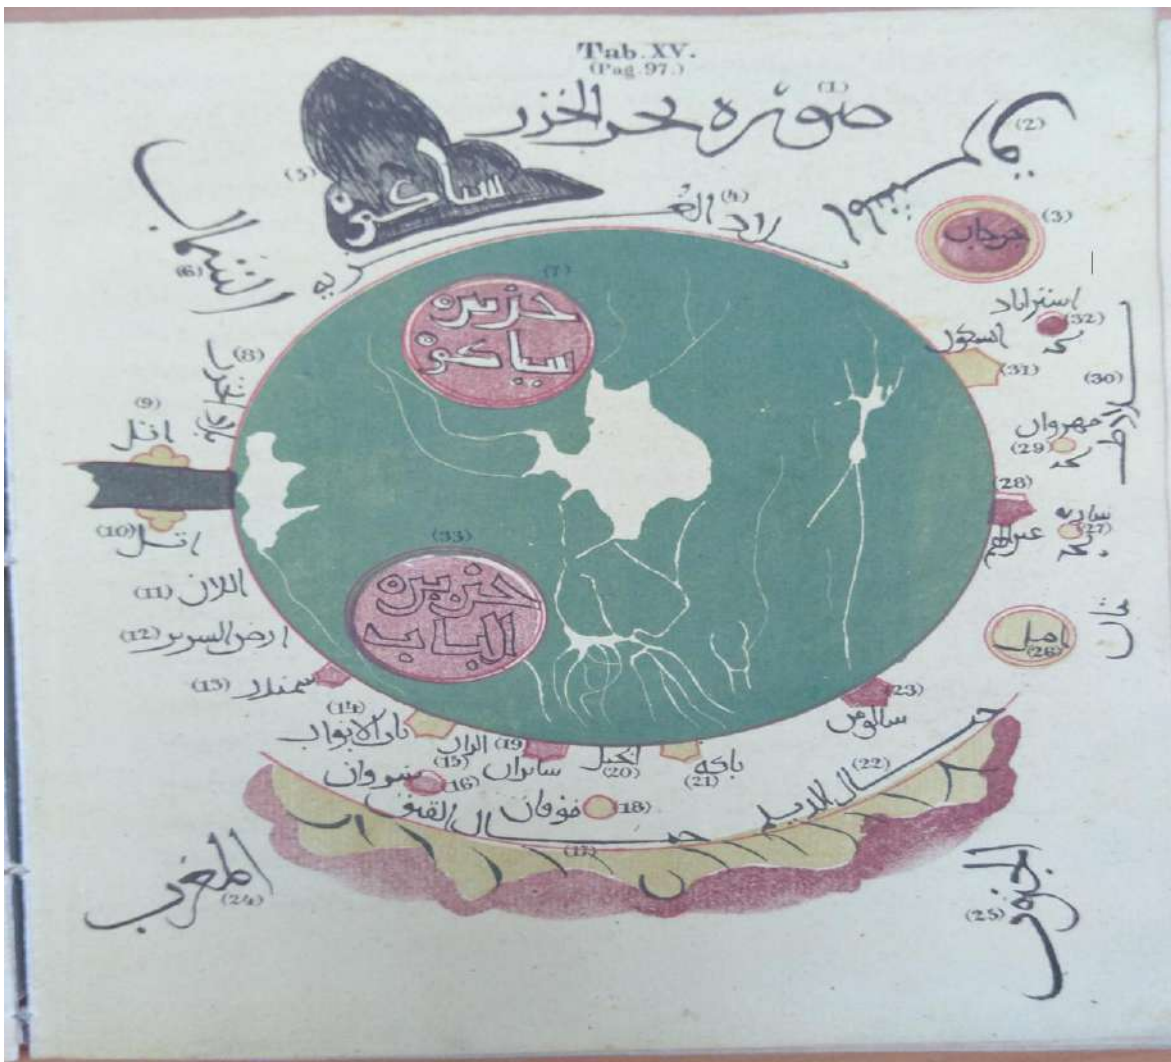 Tab. XV.
(Pag. 97.)
(1) صورة بحر الخزر
(2)
(3) جرجان
(4)
(5) سياكوه
(6) الشمال
(7) جزيرة
سياكوه
(8)
(9) اتل
(10) اتل
(11) اللان
(12) ارض السرير
(13) سمندر
(14) باب الابواب
(15) الران
(16) شروان
(17) جبال القبق
(18) موقان
(19)
(20) الجيل
(21) باكه
(22) جبال الديلم
(23) سالوس
(24) المغرب
(25) الجنوب
(26) امل
(27) سارية
(28) عين الهم
(29) مهروان
(30)
(31) ابسكون
(32) استراباد
(33) جزيرة
الباب